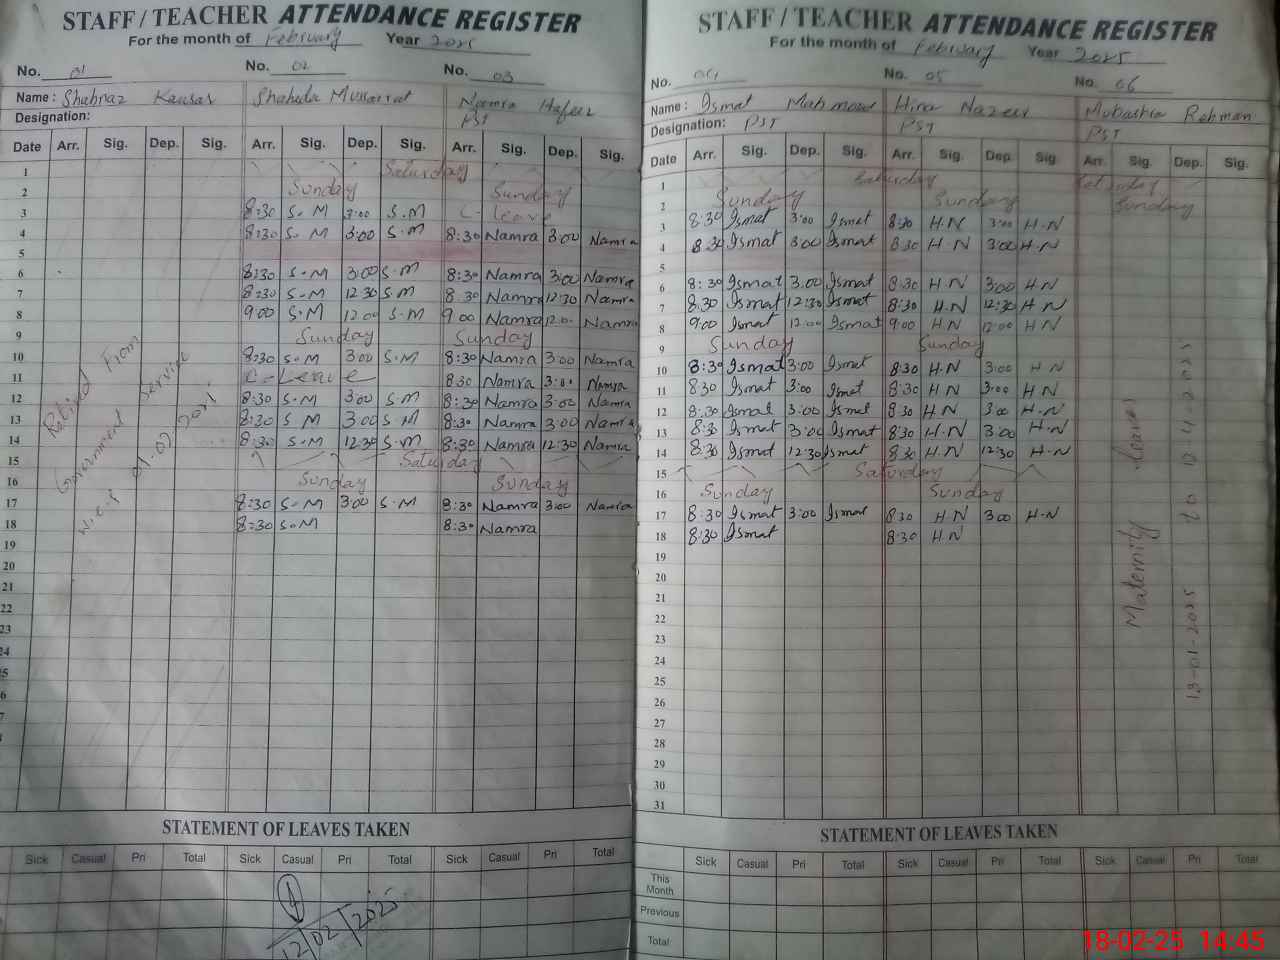 STAFF / TEACHER ATTENDANCE REGISTER
For the month of February Year 2025
No. 01 No. 02 No. 03
Name : Shahnaz Kausar Shaheda Mussarrat Namra Hafeez
Designation: PST
Date Arr. Sig. Dep. Sig. Arr. Sig. Dep. Sig. Arr. Sig. Dep. Sig.
1 Saturday
2 Sunday Sunday
3 8:30 S.M 3:00 S.M C-leave
4 8:30 S.M 3:00 S.M 8:30 Namra 3:00 Namra
5
6 8:30 S.M 3:00 S.M 8:30 Namra 3:00 Namra
7 8:30 S.M 12:30 S.M 8:30 Namra 12:30 Namra
8 9:00 S.M 12:00 S.M 9:00 Namra 12:0. Namra
9 Sunday Sunday
10 8:30 S.M 3:00 S.M 8:30 Namra 3:00 Namra
11 C-Leave 8:30 Namra 3:00 Namra
12 8:30 S.M 3:00 S.M 8:30 Namra 3:00 Namra
13 8:30 S.M 3:00 S.M 8:30 Namra 3:00 Namra
14 8:30 S.M 12:30 S.M 8:30 Namra 12:30 Namra
15 Saturday
16 Sunday Sunday
17 8:30 S.M 3:00 S.M 8:30 Namra 3:00 Namra
18 8:30 S.M 8:30 Namra
19
20
21
22
23
24
Retired From
Government Service
w.e.f 01.02.2025
STATEMENT OF LEAVES TAKEN
Sick Casual Pri Total Sick Casual Pri Total Sick Casual Pri Total
12/02/2025
STAFF / TEACHER ATTENDANCE REGISTER
For the month of February Year 2025
No. 04 No. 05 No. 06
Name : Ismat Mahmood Hira Nazeer Mubashra Rehman
Designation: PST PST PST
Date Arr. Sig. Dep. Sig. Arr. Sig. Dep. Sig. Arr. Sig. Dep. Sig.
1 Saturday Saturday
2 Sunday Sunday Sunday
3 8:30 Ismat 3:00 Ismat 8:30 H.N 3:00 H.N
4 8:30 Ismat 3:00 Ismat 8:30 H.N 3:00 H.N
5
6 8:30 Ismat 3:00 Ismat 8:30 H.N 3:00 H.N
7 8:30 Ismat 12:30 Ismat 8:30 H.N 12:30 H.N
8 9:00 Ismat 12:00 Ismat 9:00 H.N 12:00 H.N
9 Sunday Sunday
10 8:30 Ismat 3:00 Ismat 8:30 H.N 3:00 H.N
11 8:30 Ismat 3:00 Ismat 8:30 H.N 3:00 H.N
12 8:30 Ismat 3:00 Ismat 8:30 H.N 3:00 H.N
13 8:30 Ismat 3:00 Ismat 8:30 H.N 3:00 H.N
14 8:30 Ismat 12:30 Ismat 8:30 H.N 12:30 H.N
15 Saturday
16 Sunday Sunday
17 8:30 Ismat 3:00 Ismat 8:30 H.N 3:00 H.N
18 8:30 Ismat 8:30 H.N
19
20
21
22
23
24
25
26
27
28
29
30
31
Maternity leaves
13-01-2025 to 12-4-2025
STATEMENT OF LEAVES TAKEN
Sick Casual Pri Total Sick Casual Pri Total Sick Casual Pri Total
This Month
Previous
Total
18-02-25 14:45